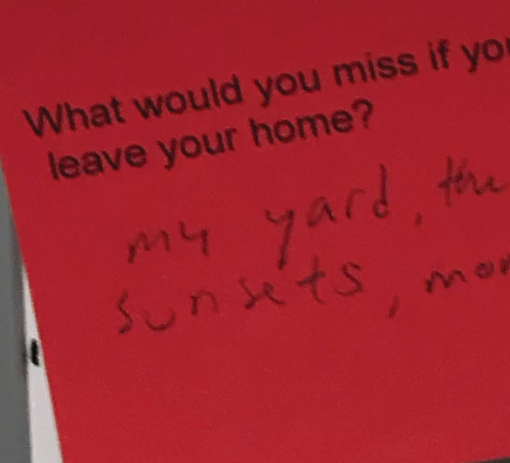 What would you miss if
leave your home?
my yard, the
sunsets,